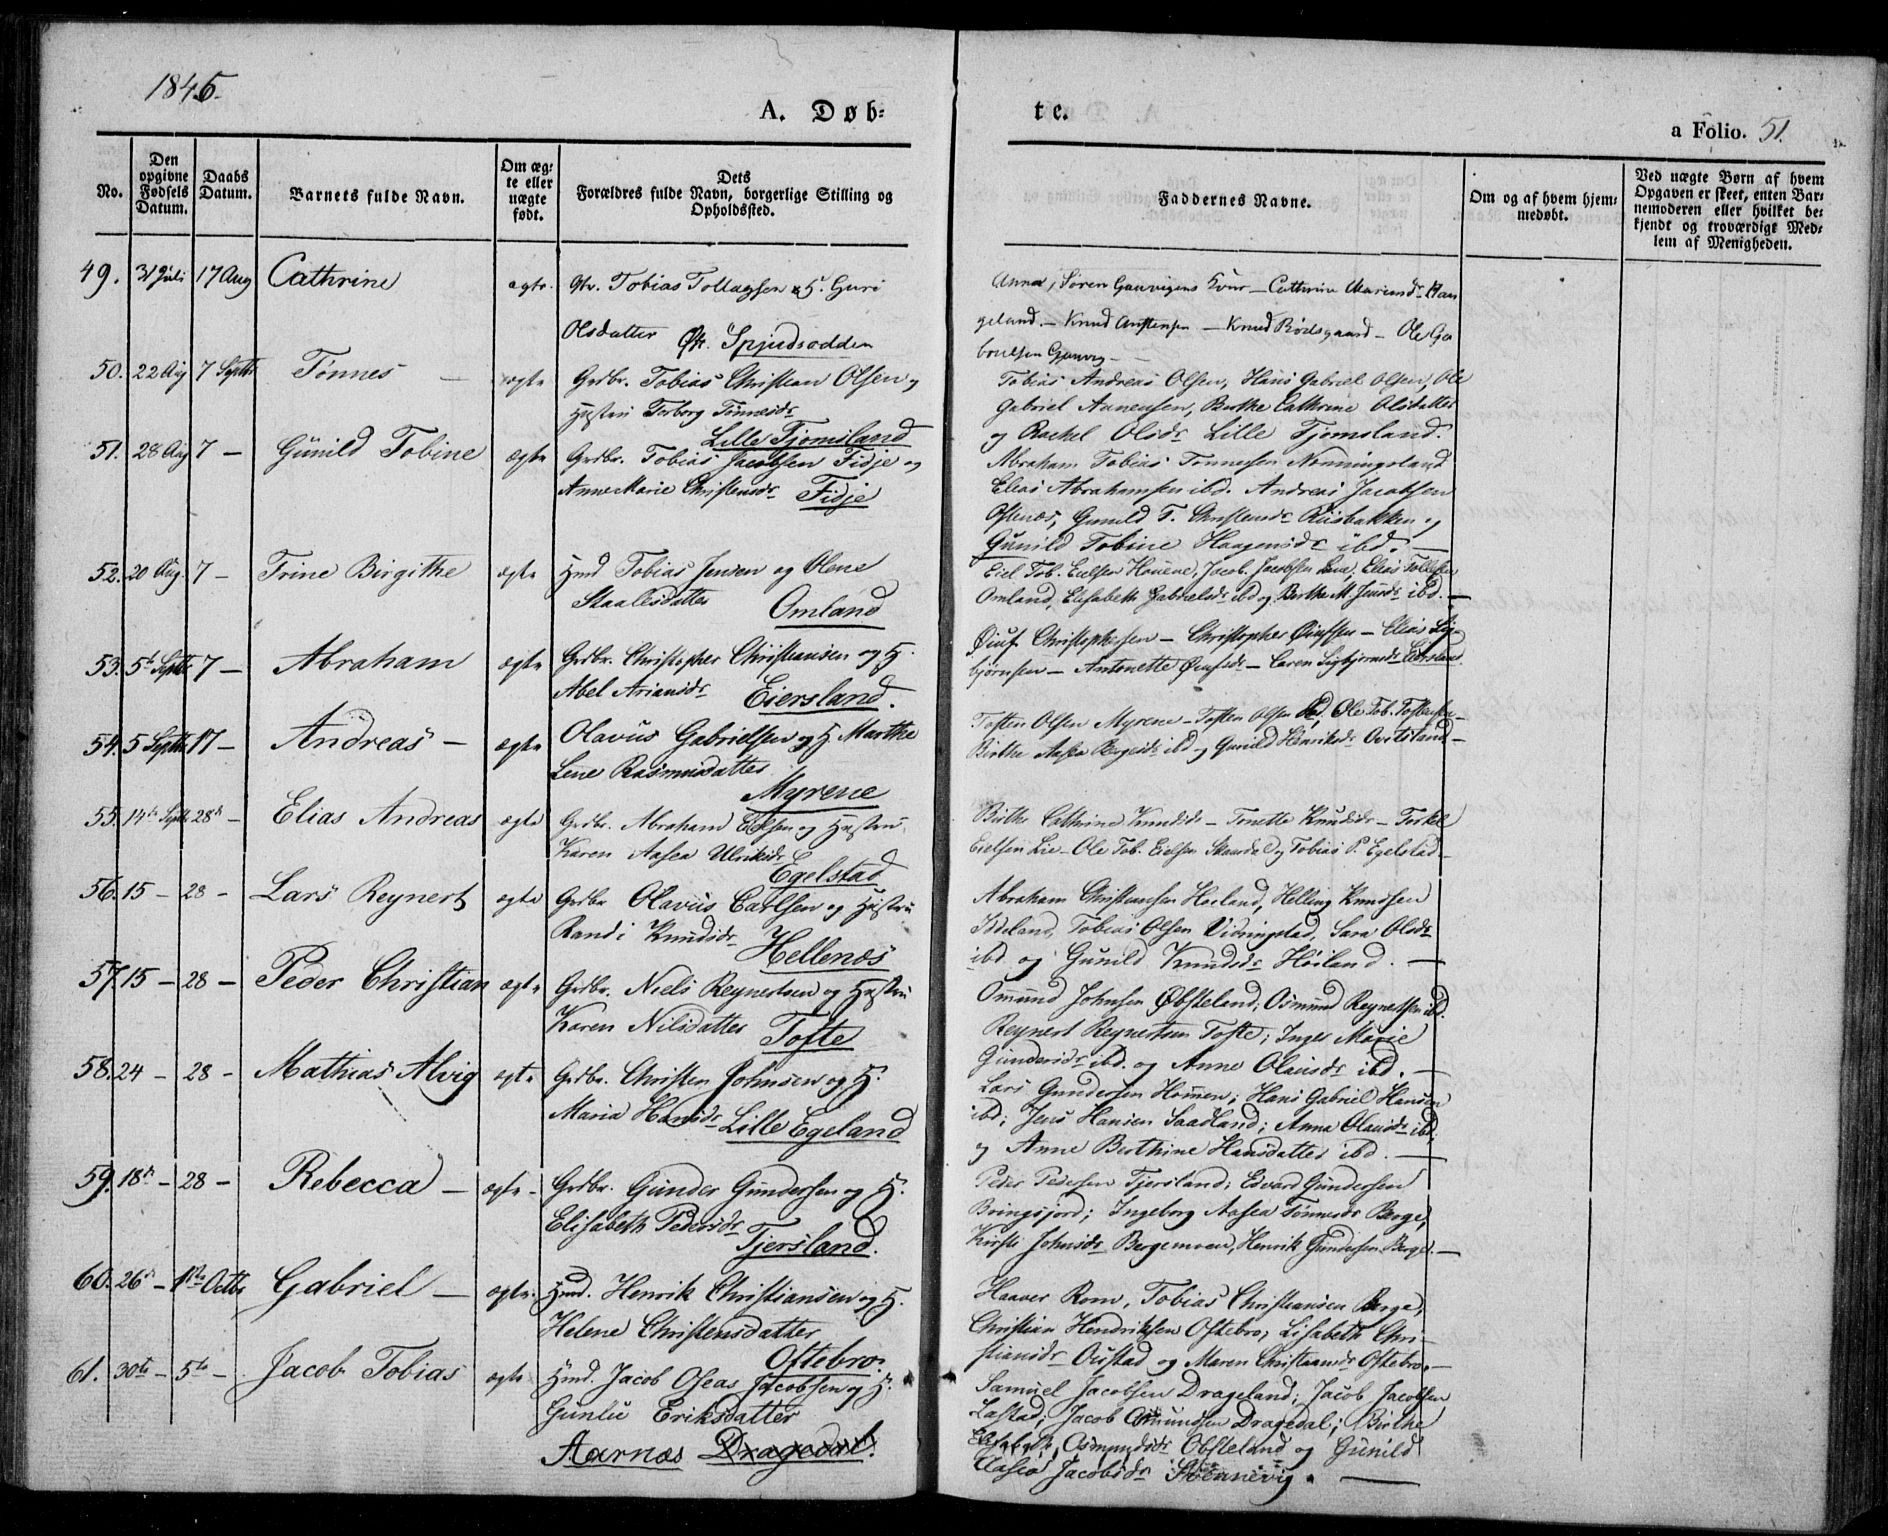 1845.
A. Døb-
te.
a Folio. 51.
No.
Den opgivne Fødsels Datum.
Daabs Datum.
Barnets fulde Navn.
Om ægte eller nægte født.
Dets
Forældres fulde Navn, borgerlige Stilling og
Opholdssted.
Faddernes Navne.
Om og af hvem hjem-
medøbt.
Ved nægte Børn af hvem
Opgaven er skeet, enten Bar-
nemoderen eller hvilket be-
kjendt og troværdigt Med-
lem af Menigheden.
49. 31 Juli 17 Aug Cathrine ægte. Tobias Tollagsen & H. Guri
Olsdatter Spjudsodden
Anna, Søren Gauvigens Kone – Cathrine Mariusdr Han
geland. – Knud Anstensen – Knud Rødsgaard – Ole Ga
brielsen Gauvig –
50. 22 Aug 7 Septbr Tønnes – ægte Grdbr. Tobias Christian Olsen og
Hustru Torborg Tønnesdr
Lille Tjomsland
Tobias Andreas Olsen, Hans Gabriel Olsen, Ole
Gabriel Aanensen, Berthe Cathrine Olsdatter
og Rachel Olsdr Lille Tjomsland.
51. 28 Aug 7 – Gunild Tobine ægte Grdbr. Tobias Jacobsen Fidje og
Anne Marie Christensdr Fidje
Abraham Tobias Tønnesen Nonningsland
Elias Abrahamsen ibd. Andreas Jacobsen
Ostenæs, Gunild T. Christensdr Riisbakken og
Gunild Tobine Haagensdr ibd. –
52. 20 Aug. 7 – Trine Birgithe ægte Hmd Tobias Jensen og Olene
Staalesdatter Omland
Eiel Tob. Eielsen Houene, Jacob Jacobsen Lene, Elias Tollefsen
Omland, Elisabeth Gabrielsdr ibd og Berthe M. Jensdr ibd. –
53. 5te Septbr 7 – Abraham ægte Grdbr. Christopher Christiansen og H.
Abel Ariansdr Eiersland.
Øiuf Christophersen – Christopher Øiufsen – Elias Sig-
bjørnsen – Antonette Øiufsdr – Caren Sigbjørnsdr Eiersland
54. 5 Septbr 17 – Andreas – ægte Olavus Gabrielsen og H Marthe
Lene Rasmusdatter
Myrene
Tosten Olsen Myrene – Tosten Olsen ibd, Ole Tob. Tostensen –
Birthe Aasea Bergesdr ibd og Gunild Henriksdr Ovedsland –
55. 14de Septbr 28de – Elias Andreas ægte Grdbr. Abraham Eielsen og Hustru
Karen Aasea Ulriksdr
Egelstad
Birthe Cathrine Knudsdr – Tonette Knudsdr – Torkel
Eielsen Lie – Ole Tob. Eielsen Skaardal og Tobias P. Egelstad –
56. 15 – 28 – Lars Reynert ægte Grdbr Olavus Carlsen og Hustru
Randi Knudsdr Hellenæs
Abraham Christensen Høiland, Helling Knudsen
Ideland, Tobias Olsen Vidringstad, Sara Olsdr
ibd og Gunild Knudsdr Høiland. –
57. 15 – 28 – Peder Christian ægte Grdbr. Niels Reynertsen og Hustru
Karen Nilsdatter Tofte
Omund Johnsen Øbsteland, Osmund Reynertsen ibd.
Reynert Reynertsen Tofte; Inger Marie
Gundersdr ibd. og Anne Olausdr ibd. –
58. 24 – 28 – Mathias Alvig ægte Grdbr. Christen Johnsen og H.
Maria Hansdr Lille Egeland
Lars Gundersen Hommen; Hans Gabriel Hansen
ibd; Jens Hansen Saadland; Anna Olausdr ibd,
og Anne Berthine Hansdatter ibd. –
59. 18de – 28 – Rebecca – ægte – Grdbr. Gunder Gundersen og H.
Elisabeth Pedersdr
Tjersland.
Peder Pedersen Tjersland; Edvard Gundersen
Bringsjord; Ingeborg Aasea Tønnesdr Berge;
Kirsti Johnsdr Bergemoen, Henrik Gundersen Berge. –
60. 26de – 1ste Octbr Gabriel – ægte. Hmd. Henrik Christiansen og H.
Helene Christensdatter
Oftebro.
Haaver Rom, Tobias Christiansen Berge,
Christian Hendriksen Oftebro, Lisabeth Chri-
stiansdr Oustad og Maren Christiansdr Oftebro. –
61. 30te – 5te – Jacob Tobias ægte Hmd. Jacob Oseas Jacobsen og H.
Gunlu Eriksdatter
Aarnæs Dragedal.
Samuel Jacobsen Drageland; Jacob Jacobsen
Lastad; Jacob Osmundsen Dragedal; Birthe
Elisabeth Osmundsdr Obsteland og Gunild
Aasea Jacobsdr Stennevig. –